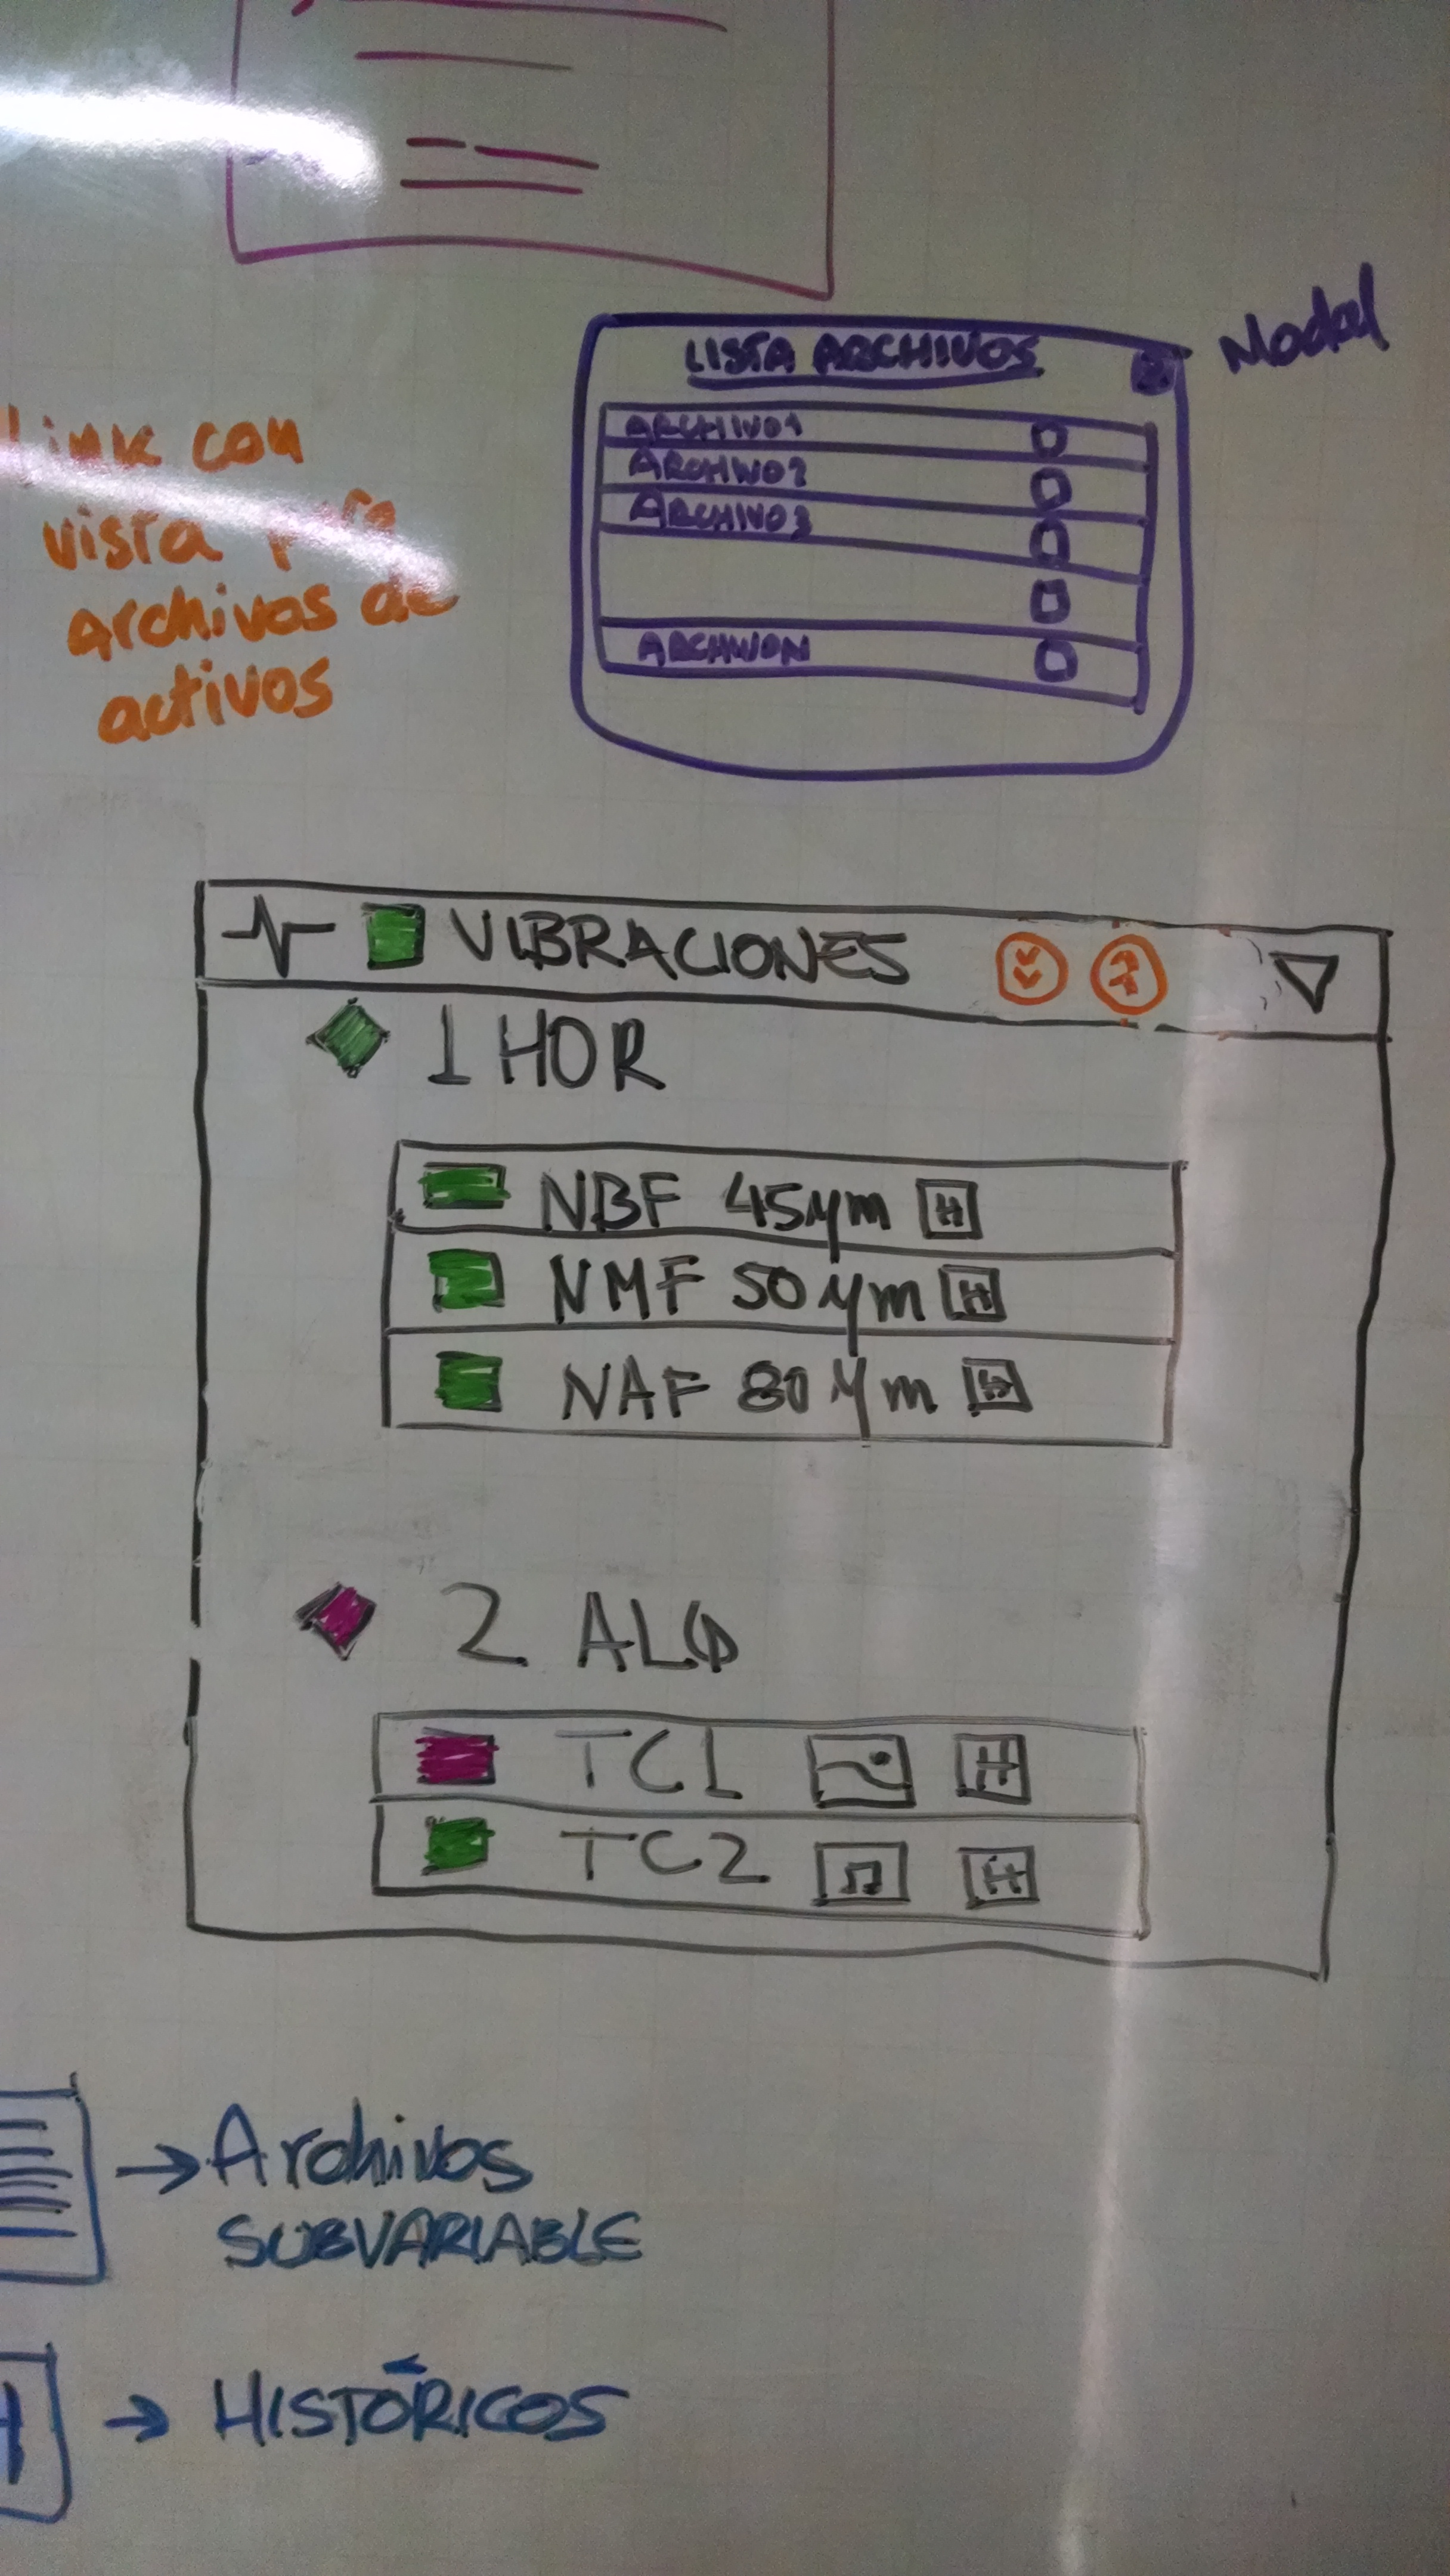 Modal
LISTA ARCHIVOS
ARCHIVO1
ARCHIVO2
ARCHIVO3
ARCHIVON
Link con
vista para
archivos de
activos
VIBRACIONES
1 HOR
NBF 45 μm H
NMF 50 μm H
NAF 80 μm H
2 ALΦ
TC1 H
TC2 H
→ Archivos
SUBVARIABLE
H → HISTÓRICOS